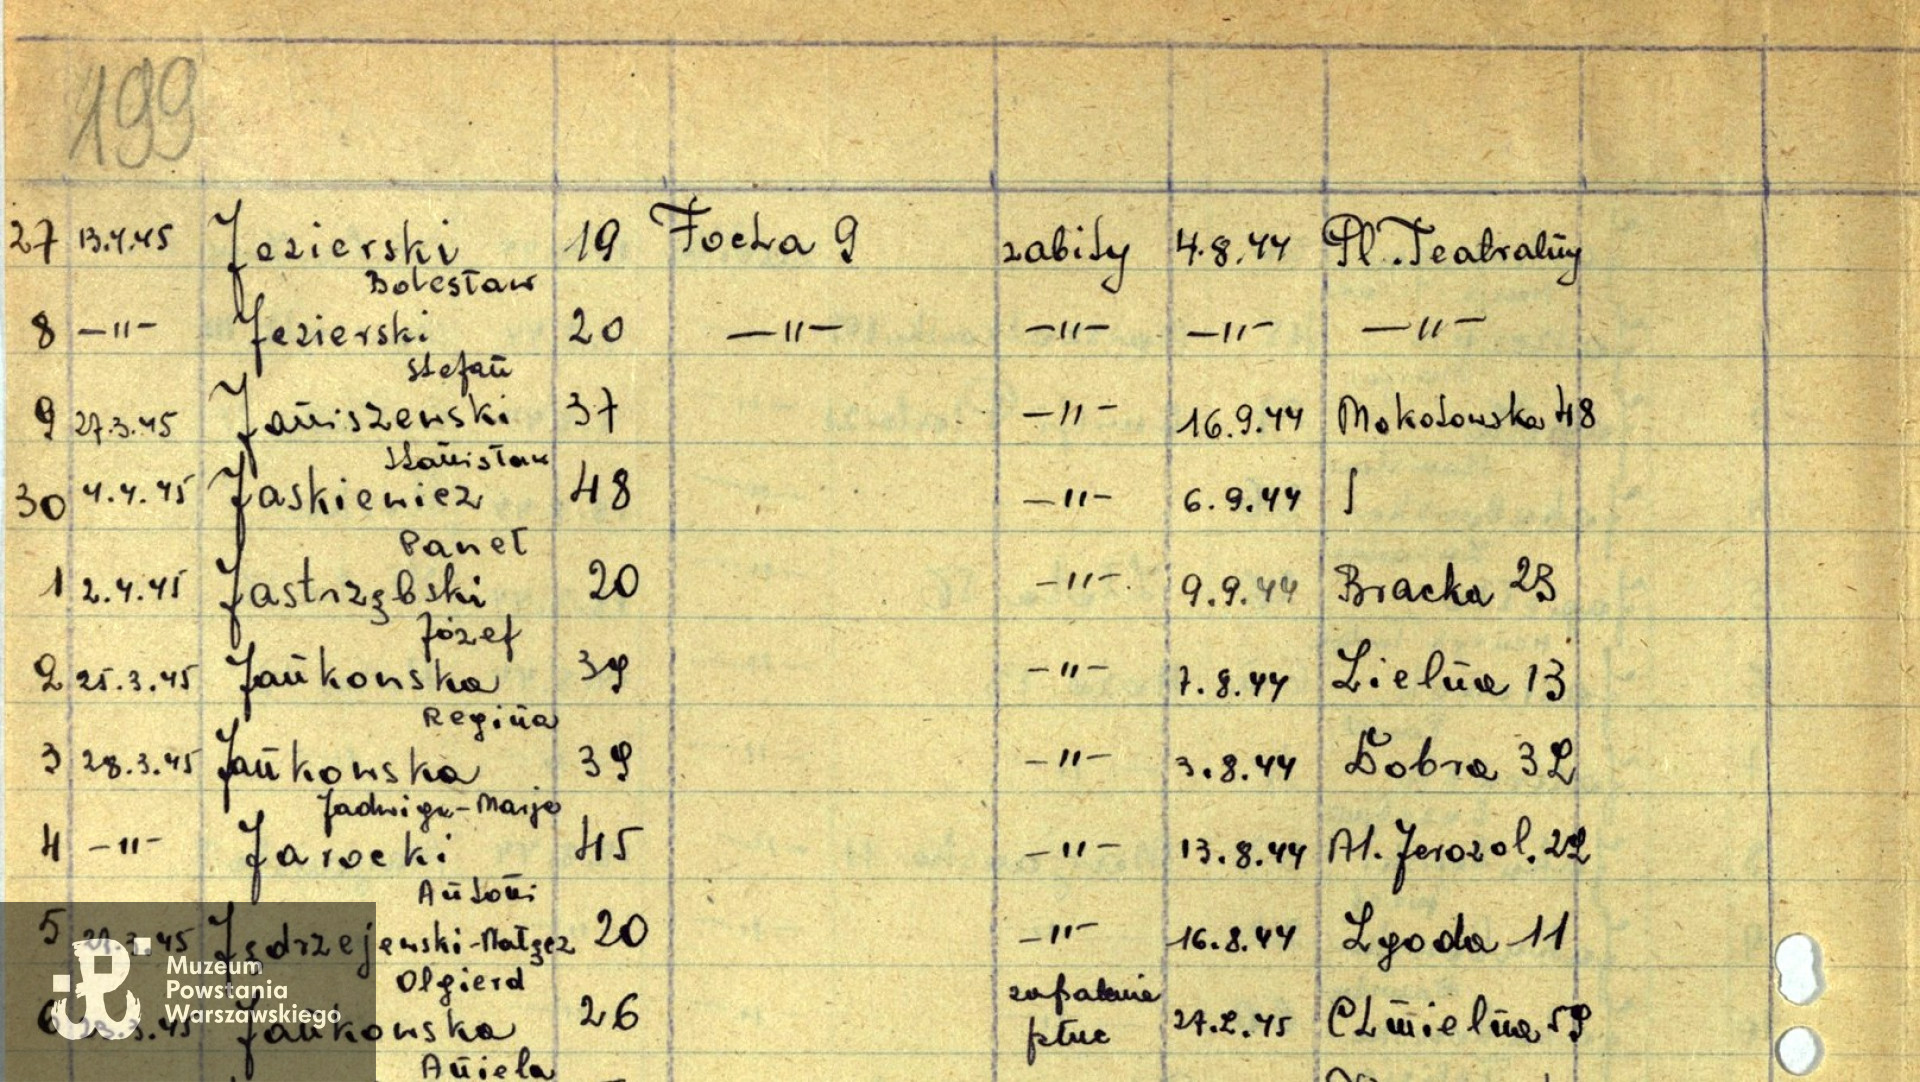 199
27 13.4.45 Jezierski 19 Focha 9 zabity 4.8.44 Pl. Teatralny
Bolesław
8 —"— Jezierski 20 —"— —"— —"— —"—
Stefan
9 27.3.45 Janiszewski 37 —"— 16.9.44 Mokotowska 48
Stanisław
30 4.4.45 Jaskiewicz 48 —"— 6.9.44
Paweł
1 2.4.45 Jastrzębski 20 —"— 9.9.44 Bracka
Józef
2 25.3.45 Jankowska —"— 7.8.44 Zielna 13
Regina
3 28.3.45 Jankowska —"— 3.8.44 Dobra
Jadwiga-Marja
4 —"— Jarocki 45 —"— 13.8.44 Al. Jerozol.
Antoni
5 .3.45 Jędrzejewski-Małgez 20 —"— 16.8.44 Zgoda 11
Olgierd
6 .3.45 Jankowska 26 zapalenie płuc 27.2.45 Chmielna
Aniela
Muzeum
Powstania
Warszawskiego